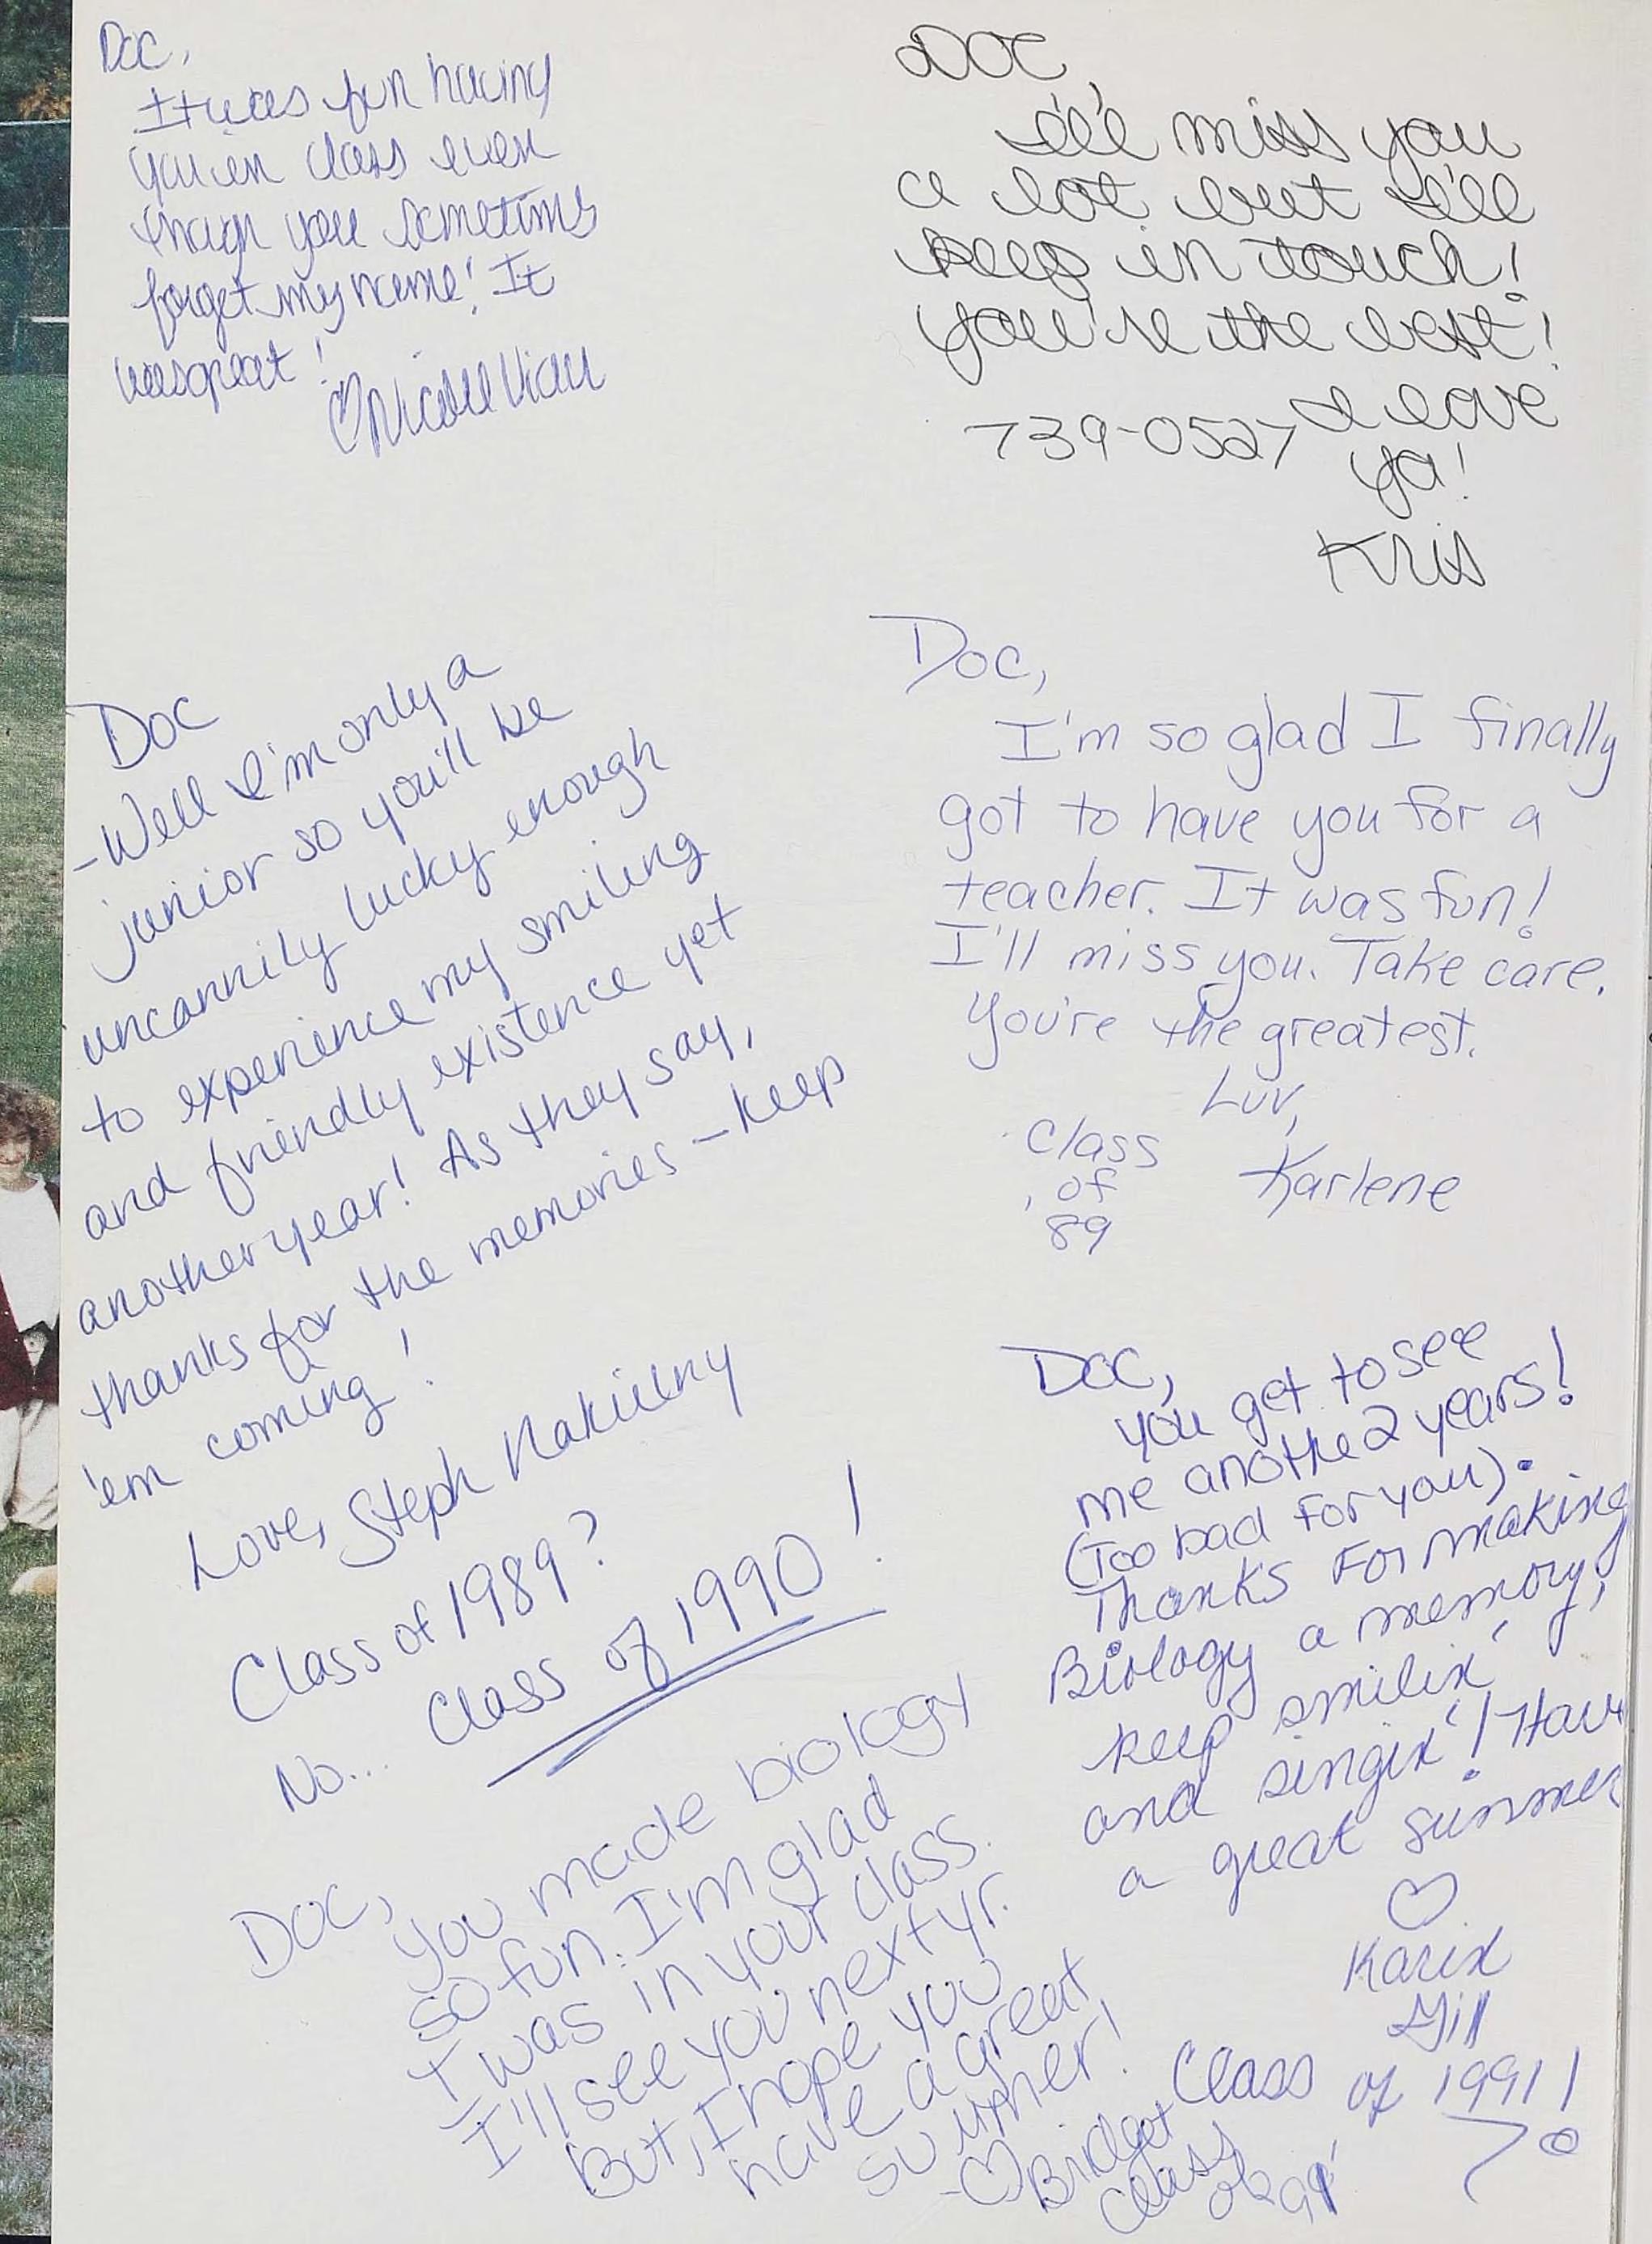 Doc,
It was fun having
you in class even
though you sometimes
forget my name! It
was great!
♡Nicole Viau
Doc,
I'll miss you
a lot but I'll
keep in touch!
You're the best!
I love
739-0527
ya!
Kris
Doc
-Well I'm only a
junior so you'll be
uncannily lucky enough
to experience my smiling
and friendly existence yet
another year! As they say,
thanks for the memories - keep
'em coming!
Love, Steph Nakielny
Class of 1989?
No... Class of 1990!
Doc,
I'm so glad I finally
got to have you for a
teacher. It was fun!
I'll miss you. Take care.
You're the greatest.
Luv,
Karlene
Class
of
89
Doc,
You get to see
me anothe 2 years!
(Too bad for you).
Thanks For making
Biology a memory,
keep smilin'
and singin'! Have
a great summer
♡
Karin
Gill
Class of 1991!
Doc,
You made biology
so fun. I'm glad
I was in your class.
I'll see you next yr.
But, I hope you
have a great
summer!
-♡Bridget
Class
of 91